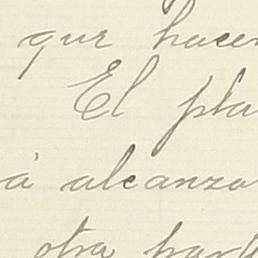 que hacer
El pla
á alcanza
otra part